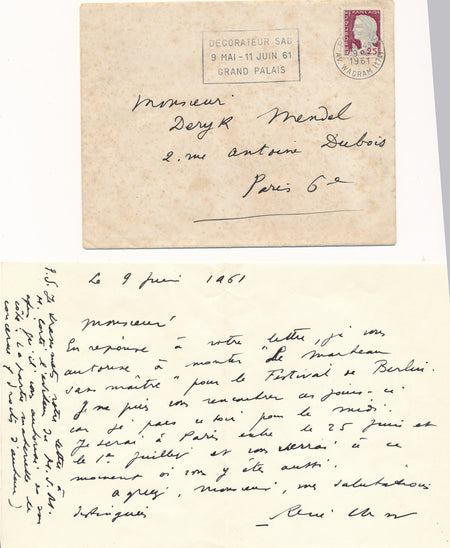 DECORATEUR SAD
9 MAI - 11 JUIN 61
GRAND PALAIS
1961
AV. WAGRAM (17e)
0,25
Monsieur
Deryk Mendel
2. rue Antoine Dubois
Paris 6e
Le 9 juin 1961
Monsieur
En réponse à votre lettre, je vous
autorise à monter "Le marteau
sans maître" pour le Festival de Berlin.
Je ne puis vous rencontrer ces jours-ci
car je pars ce soir pour le midi.
Je serai à Paris entre le 25 juin et
le 1er juillet et vous verrai à ce
moment si vous y êtes aussi.
Agréez, Monsieur, mes salutations
distinguées
René Char
P.S. Je transmets votre lettre à
de son
côté. (La partie matérielle
concernant droits d'auteur)